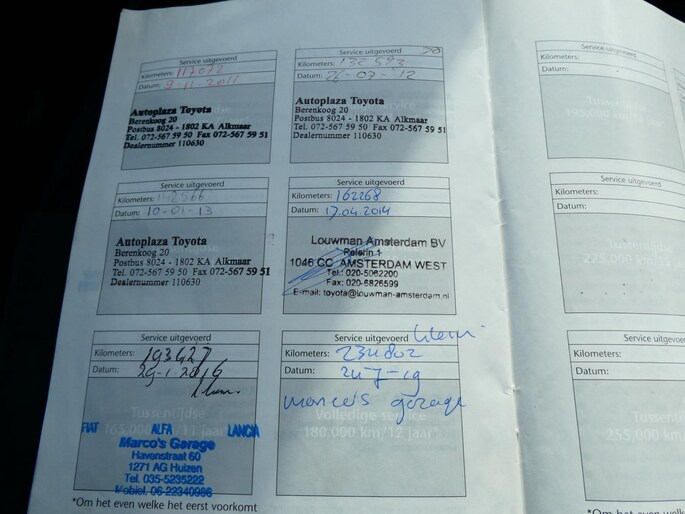 Service uitgevoerd
Kilometers: 117012
Datum: 9-11-2011
Autoplaza Toyota
Berenkoog 20
Postbus 8024 - 1802 KA Alkmaar
Tel. 072-567 59 50 Fax 072-567 59 51
Dealernummer 110630
Service uitgevoerd
Kilometers: 132593
Datum: 26-07-'12
Autoplaza Toyota
Berenkoog 20
Postbus 8024 - 1802 KA Alkmaar
Tel. 072-567 59 50 Fax 072-567 59 51
Dealernummer 110630
Service uitgevoerd
Kilometers:
Datum:
195.000 km/13 jaar*
Service uitgevoerd
Kilometers:
Datum: 10-01-13
Autoplaza Toyota
Berenkoog 20
Postbus 8024 - 1802 KA Alkmaar
Tel. 072-567 59 50 Fax 072-567 59 51
Dealernummer 110630
Service uitgevoerd
Kilometers: 162268
Datum: 17.04.2014
Louwman Amsterdam BV
Pelerin 1
1046 CC AMSTERDAM WEST
Tel.: 020-5062200
Fax: 020-6826599
E-mail: toyota@louwman-amsterdam.nl
Service uitgevoerd
Kilometers:
Datum:
Tussentijdse
225.000 km/
Service uitgevoerd
Kilometers: 193427
Datum: 29-1-2016
Tussentijdse
165.000 km/11 jaar*
FIAT ALFA LANCIA
Marco's Garage
Havenstraat 60
1271 AG Huizen
Tel. 035-5235222
Mobiel. 06-22340986
Service uitgevoerd klein
Kilometers: 234802
Datum: 24-7-19
marco's garage
Volledige service
180.000 km/12 jaar*
Service uitgevoerd
Kilometers:
Datum:
255.000 km/
*Om het even welke het eerst voorkomt
*Om het even welke